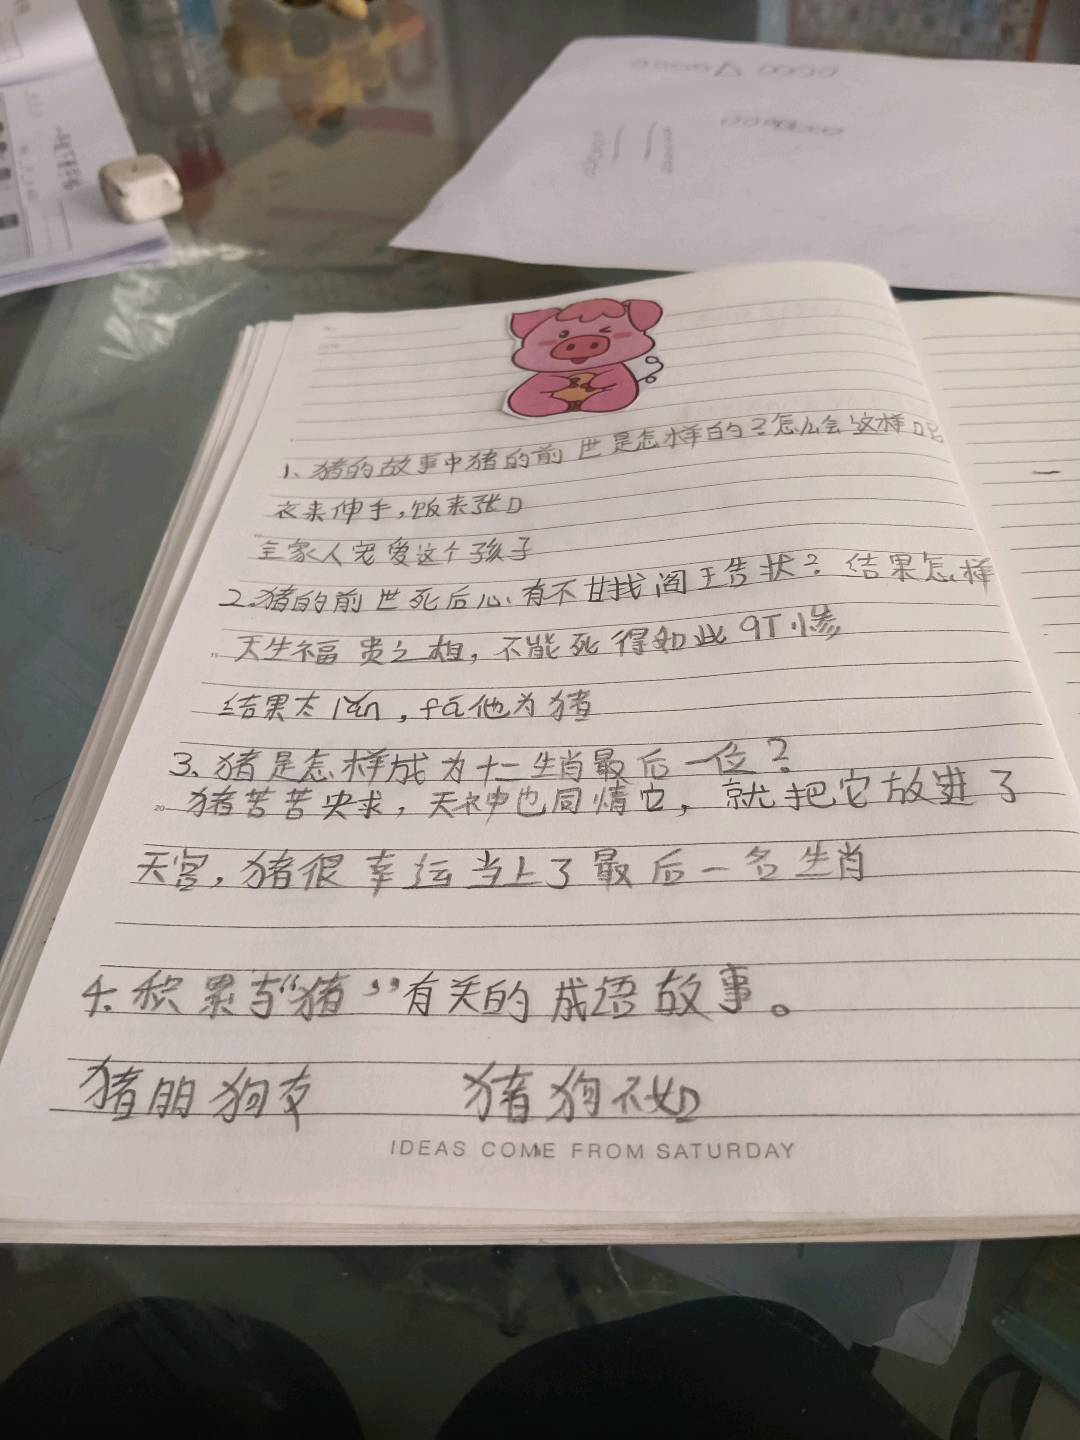 1、猪的故事中猪的前世是怎样的？怎么会这样呢
衣来伸手，饭来张口
全家人宠爱这个孩子
2.猪的前世死后心有不甘找阎王告状？结果怎样
天生福贵之相，不能死得如此
结果太lǎn，fá他为猪
3、猪是怎样成为十二生肖最后一位？
猪苦苦央求，天神也同情它，就把它放进了
天宫，猪很幸运当上了最后一名生肖
4.积累与“猪”有关的成语故事。
猪朋狗友 猪狗不如
IDEAS COME FROM SATURDAY